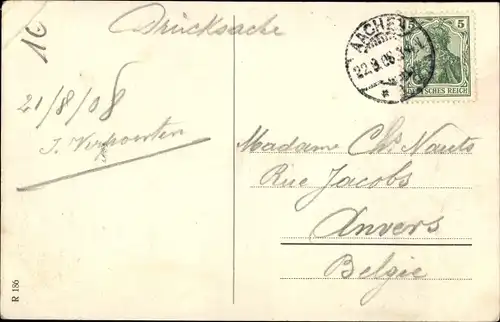 Drucksache
AACHEN
22.8.08
5 5
DEUTSCHES REICH
21/8/08
J. Verpoorten
Madame Chs Nauts
Rue Jacobs
Anvers
Belgie
R 186